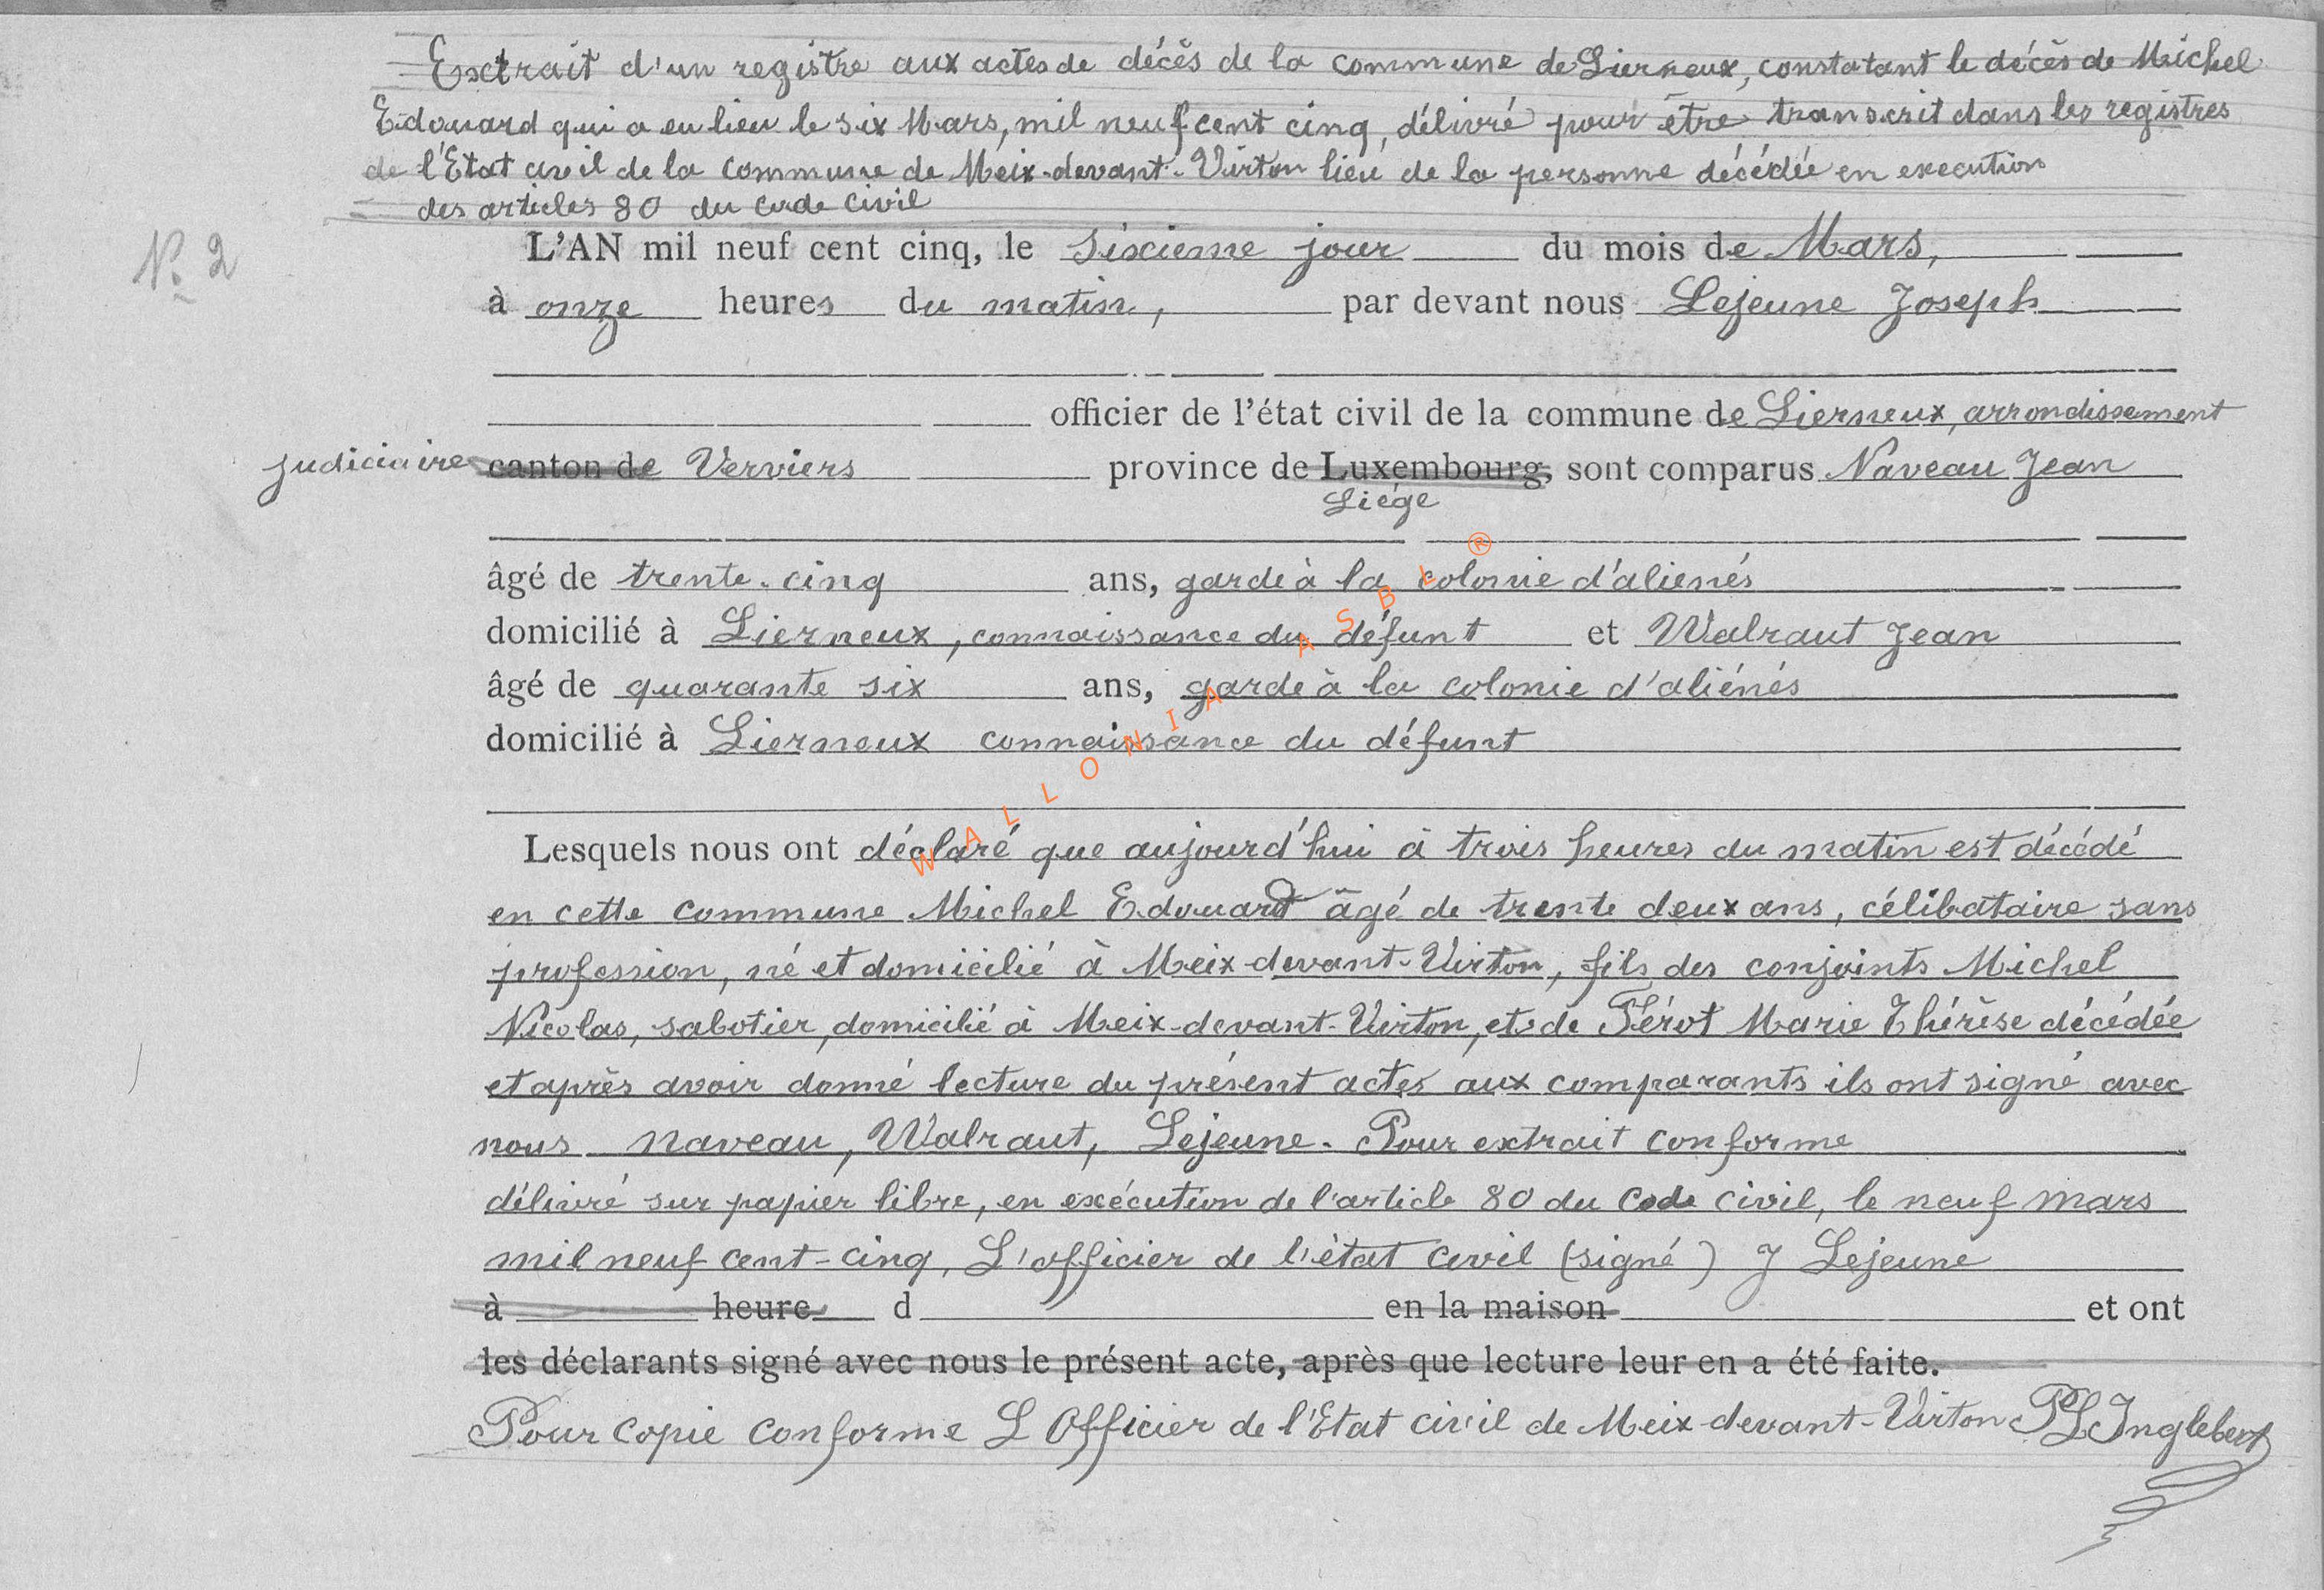 Extrait d'un registre aux actes de décès de la commune de Lierneux, constatant le décès de Michel
Edouard qui a eu lieu le six Mars, mil neuf cent cinq, délivré pour être transcrit dans les registres
de l'Etat civil de la commune de Meix-devant-Virton lieu de la personne décédée en execution
des articles 80 du code civil
N° 2
L'AN mil neuf cent cinq, le sixieme jour du mois de Mars,
à onze heures du matin, par devant nous Lejeune Joseph
officier de l'état civil de la commune de Lierneux, arrondissement
judiciaire canton de Verviers province de Luxembourg, sont comparus Naveau Jean
Liége
âgé de trente-cinq ans, garde à la colonie d'alienés
domicilié à Lierneux, connaissance du défunt et Walraut Jean
âgé de quarante six ans, garde à la colonie d'aliénés
domicilié à Lierneux connaissance du défunt
Lesquels nous ont déclaré que aujourd'hui à trois heures du matin est décédé
en cette commune Michel Edouard âgé de trente deux ans, célibataire sans
profession, né et domicilié à Meix-devant-Virton, fils des conjoints Michel
Nicolas, sabotier, domicilié à Meix-devant-Virton, et de Férot Marie Thérèse décédée
et après avoir donné lecture du présent actes aux comparants ils ont signé avec
nous Naveau, Walraut, Lejeune. Pour extrait conforme
délivré sur papier libre, en exécution de l'article 80 du Code civil, le neuf mars
mil neuf cent-cinq, L'officier de l'état civil (signé) J Lejeune
à heure d en la maison et ont
les déclarants signé avec nous le présent acte, après que lecture leur en a été faite.
Pour copie conforme L Officier de l'Etat civil de Meix-devant-Virton PL Inglebert
WALLONIA ASBL ®